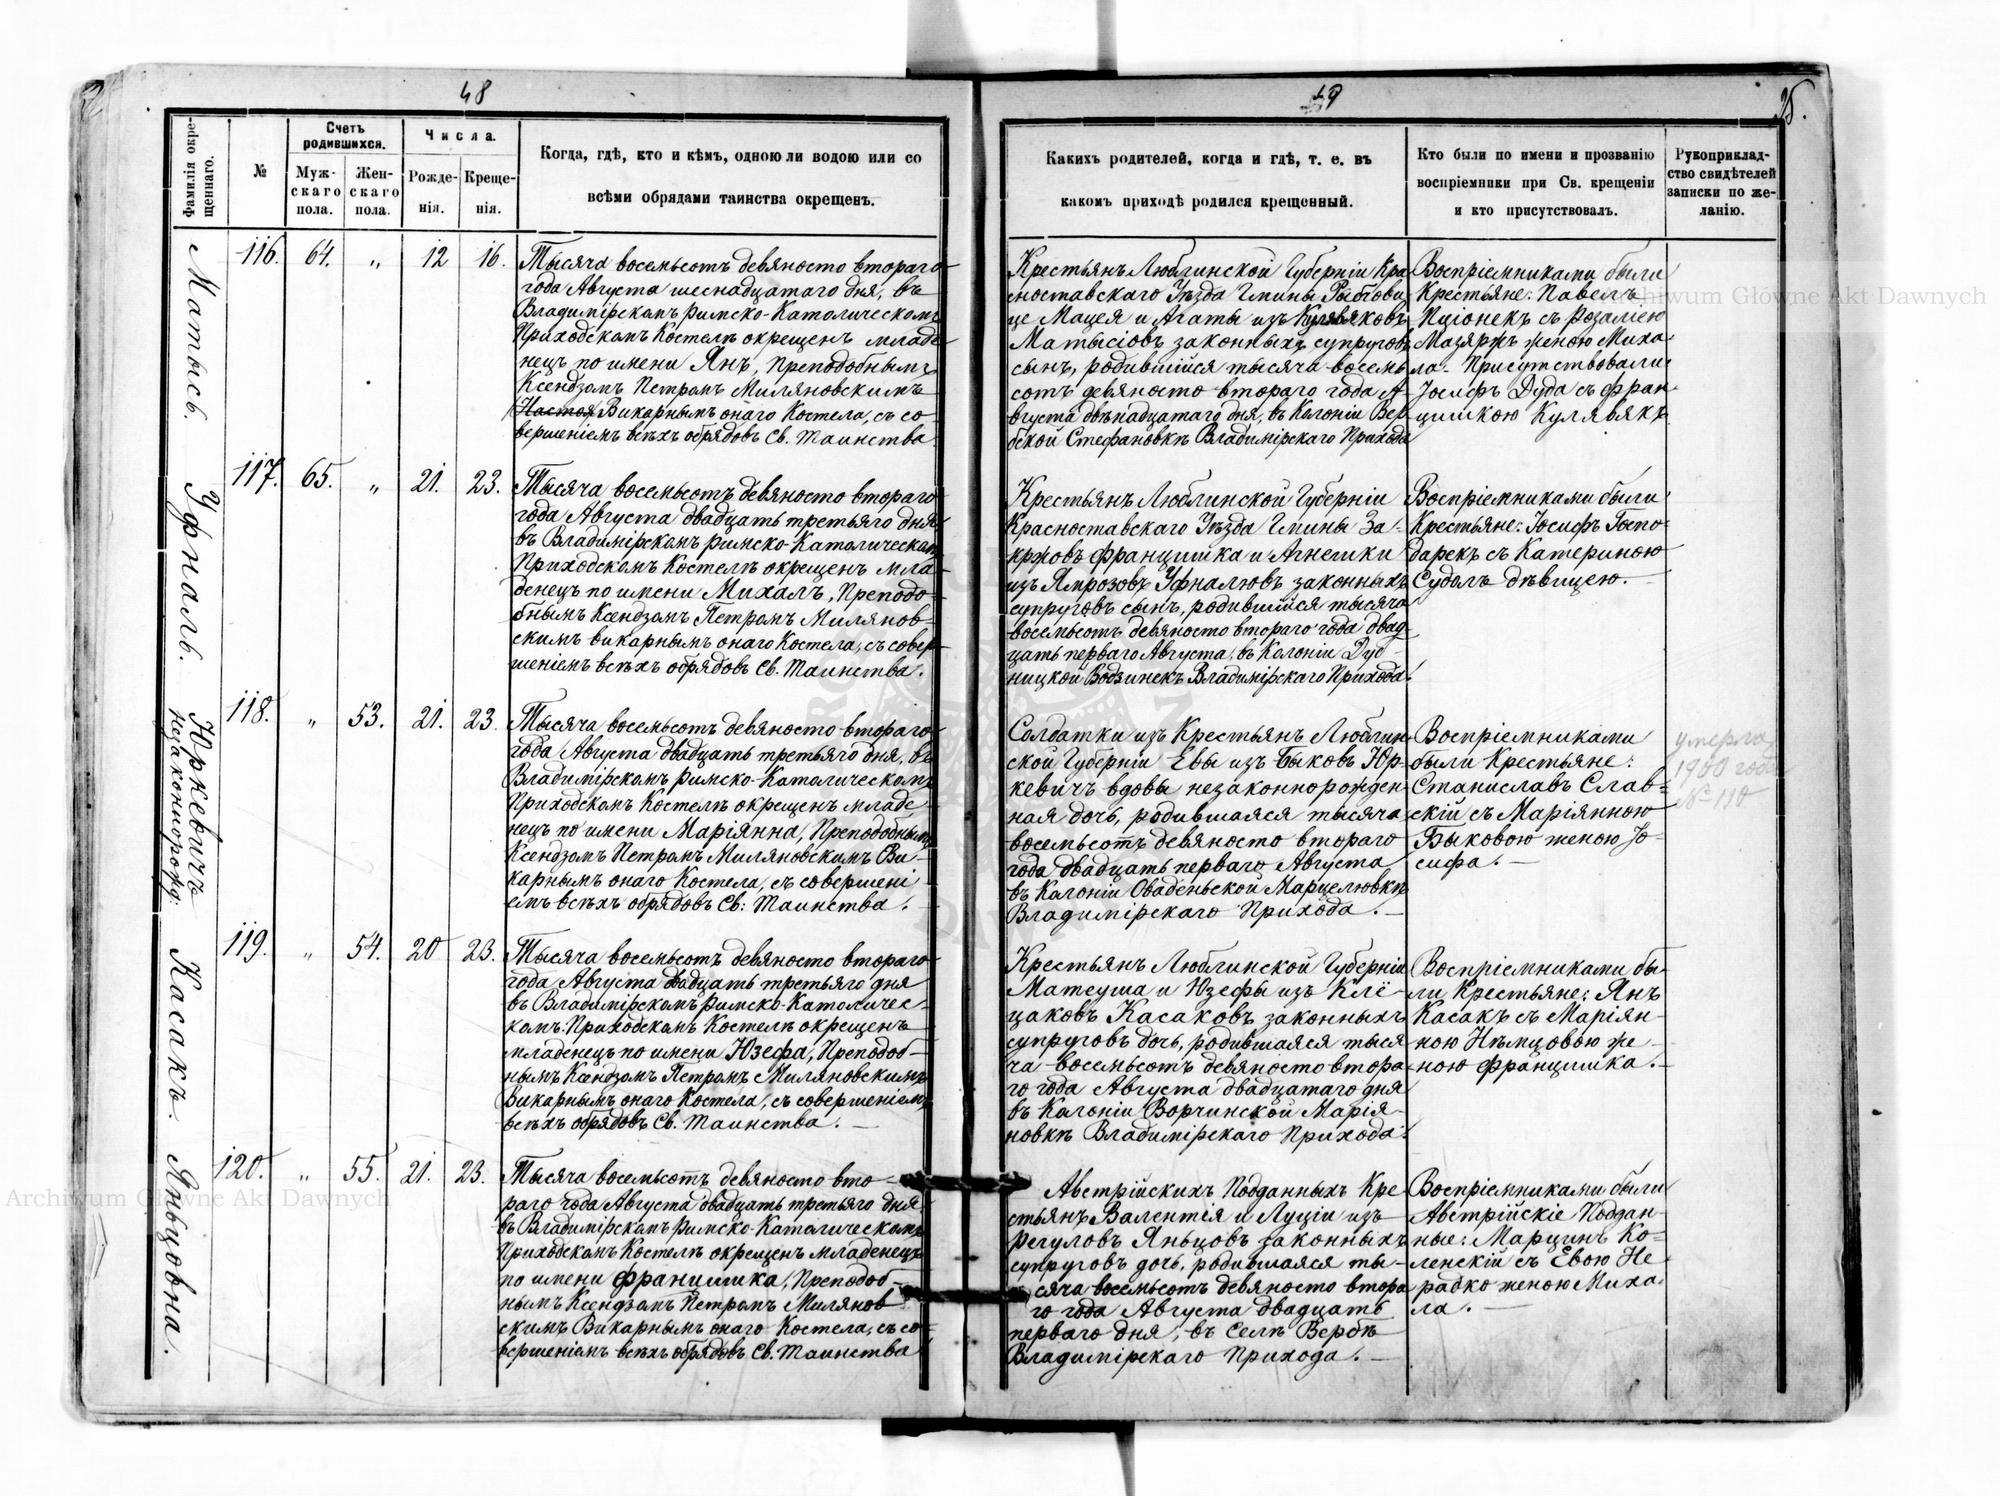 48
Фамилія окре-
щеннаго.
№
Счетъ
родившихся.
Муж-
скаго
пола.
Жен-
скаго
пола.
Числа.
Рожде-
нія.
Креще-
нія.
Когда, гдѣ, кто и кѣмъ, одною ли водою или со
всѣми обрядами таинства окрещенъ.
Матысь.
116. 64. „ 12 16.
Тысяча восемьсотъ девяносто втораго
года Августа шеснадцатаго дня, въ
Владимірскомъ Римско-Католическомъ
Приходскомъ Костелѣ окрещенъ младе-
нецъ по имени Янъ, Преподобнымъ
Ксендзомъ Петромъ Миляновскимъ
Викарнымъ онаго Костела, съ со-
вершеніемъ всѣхъ обрядовъ Св. Таинства
Уфналь.
117. 65. „ 21. 23.
Тысяча восемьсотъ девяносто втораго
года Августа двадцать третьяго дня
въ Владимірскомъ Римско-Католическомъ
Приходскомъ Костелѣ окрещенъ мла-
денецъ по имени Михалъ, Преподо-
бнымъ Ксендзомъ Петромъ Милянов-
скимъ викарнымъ онаго Костела, съ совер-
шеніемъ всѣхъ обрядовъ Св. Таинства.
Юркевичъ
незаконнорожд:
118. „ 53. 21. 23.
Тысяча восемьсотъ девяносто втораго
года Августа двадцать третьяго дня, въ
Владимірскомъ Римско-Католическомъ
Приходскомъ Костелѣ окрещенъ младе-
нецъ по имени Маріянна, Преподобнымъ
Ксендзомъ Петромъ Миляновскимъ Ви-
карнымъ онаго Костела, съ совершені-
емъ всѣхъ обрядовъ Св: Таинства.
Касакъ.
119. „ 54. 20 23.
Тысяча восемьсотъ девяносто втораго
года Августа двадцать третьяго дня
въ Владимірскомъ Римско-Католичес-
комъ Приходскомъ Костелѣ окрещенъ
младенецъ по имени Юзефа, Преподоб-
нымъ Ксендзомъ Петромъ Миляновскимъ
Викарнымъ онаго Костела, съ совершеніемъ
всѣхъ обрядовъ Св. Таинства.
Яньцовна.
120. „ 55. 21. 23.
Тысяча восемьсотъ девяносто вто-
раго года Августа двадцать третьяго дня
въ Владимірскомъ Римско-Католическомъ
Приходскомъ Костелѣ окрещенъ младенецъ
по имени Францишка, Преподоб-
нымъ Ксендзомъ Петромъ Милянов-
скимъ Викарнымъ онаго Костела, съ со-
вершеніемъ всѣхъ обрядовъ Св. Таинства
49
25.
Какихъ родителей, когда и гдѣ, т. е. въ
какомъ приходѣ родился крещенный.
Кто были по имени и прозванію
воспріемники при Св. крещеніи
и кто присутствовалъ.
Рукоприклад-
ство свидѣтелей
записки по же-
ланію.
Крестьянъ Люблинской Губерніи Кра-
сноставскаго Уѣзда Гмины Рыбчеви-
це Мацея и Агаты изъ Кулявяковъ
Матысіовъ законныхъ супруговъ
сынъ, родившійся тысяча восемь-
сотъ девяносто втораго года А-
вгуста двѣнадцатаго дня, въ Колоніи Вер-
бской Стефановкѣ Владимірскаго Прихода
Воспріемниками были
Крестьяне: Павелъ
Пціонекъ съ Розаліею
Мазяржъ женою Миха-
ла. Присутствовали
Іосифъ Дуда съ Фран-
цишкою Кулявякъ
Крестьянъ Люблинской Губерніи
Красноставскаго Уѣзда Гмины За-
кржовъ Францишка и Агнешки
изъ Ямрозовъ Уфналювъ законныхъ
супруговъ сынъ, родившійся тысяча
восемьсотъ девяносто втораго года двад-
цать перваго Августа, въ Колоніи Дуб-
ницкой Водзинекъ Владимірскаго Прихода.
Воспріемниками были
Крестьяне: Іосифъ Госпо-
дарекъ съ Катериною
Судолъ дѣвицею.
Солдатки изъ Крестьянъ Люблин-
ской Губерніи Евы изъ Быковъ Юр-
кевичъ вдовы незаконнорожден-
ная дочь, родившаяся тысяча
восемьсотъ девяносто втораго
года двадцать перваго Августа
въ Колоніи Оваденьской Марцелювкѣ
Владимірскаго Прихода.
Воспріемниками
были Крестьяне:
Станиславъ Слав-
скій съ Маріянною
Быковою женою Іо-
сифа.
умерла
1900 года
№ 110
Крестьянъ Люблинской Губерніи
Матеуша и Юзефы изъ Клё-
цаковъ Касаковъ законныхъ
супруговъ дочь, родившаяся тыся-
ча восемьсотъ девяносто втора-
го года Августа двадцатаго дня
въ Колоніи Ворчинской Марія-
новкѣ Владимірскаго Прихода.
Воспріемниками бы-
ли Крестьяне: Янъ
Касакъ съ Маріян-
ною Нѣмцовою же-
ною Францишка.
Австрійскихъ Подданныхъ Кре-
стьянъ Валентія и Луціи изъ
Регуловъ Яньцовъ законныхъ
супруговъ дочь, родившаяся ты-
сяча восемьсотъ девяносто втора-
го года Августа двадцать
перваго дня, въ селѣ Вербѣ
Владимірскаго Прихода.
Воспріемниками были
Австрійскіе Поддан-
ные: Марцинъ Ко-
ленскій съ Евою Не-
радко женою Миха-
ла.
Archiwum Główne Akt Dawnych
Archiwum Główne Akt Dawnych